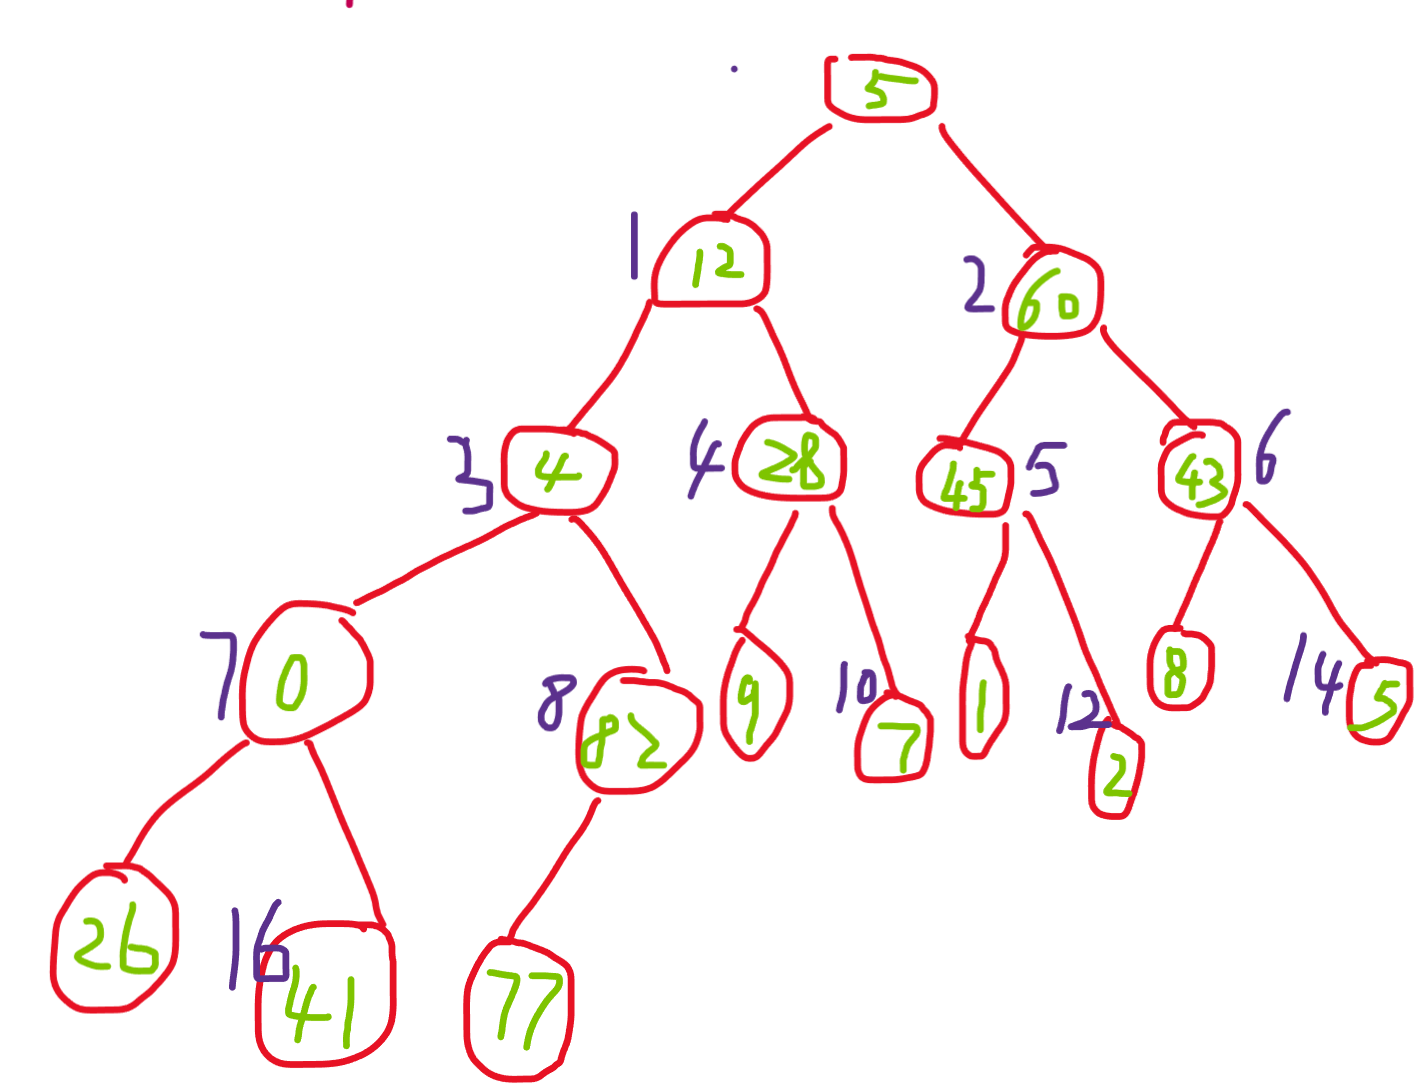 5
1 12
2 60
3 4
4 28
45 5
43 6
7 0
8 82
9
10 7
1
12 2
8
14 5
26
16 41
77